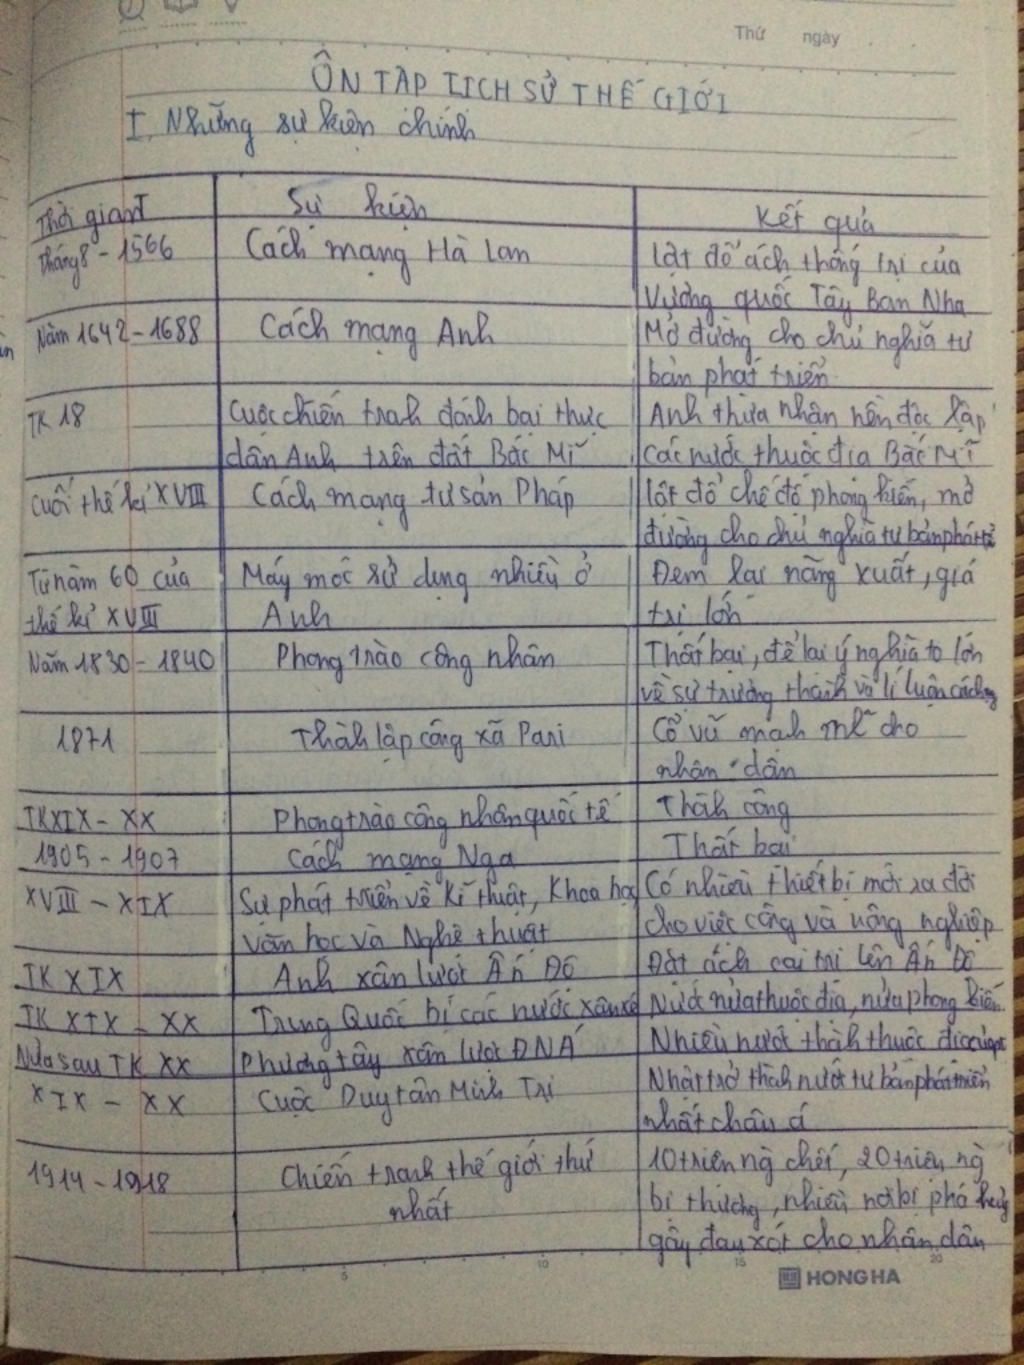 Thứ ngày
ÔN TẬP LỊCH SỬ THẾ GIỚI
I, Những sự kiện chính
Thời gian Sự kiện Kết quả
Tháng 8 - 1566 Cách mạng Hà Lan Lật đổ ách thống trị của
Vương quốc Tây Ban Nha
Năm 1642 - 1688 Cách mạng Anh Mở đường cho chủ nghĩa tư
bản phát triển
TK 18 Cuộc chiến tranh đánh bại thực Anh thừa nhận nền độc lập
dân Anh trên đất Bắc Mĩ các nước thuộc địa Bắc Mĩ
Cuối thế kỉ XVIII Cách mạng tư sản Pháp lật đổ chế độ phong kiến, mở
đường cho chủ nghĩa tư bản phát
Từ năm 60 của Máy móc sử dụng nhiều ở Đem lại năng xuất, giá
thế kỉ XVIII Anh trị lớn
Năm 1830 - 1840 Phong trào công nhân Thất bại, để lại ý nghĩa to lớn
về sự trưởng thành và lí luận cách mạng
1871 Thành lập công xã Pari Cổ vũ mạnh mẽ cho
nhân dân
TK XIX - XX Phong trào công nhân quốc tế Thành công
1905 - 1907 Cách mạng Nga Thất bại
XVIII - XIX Sự phát triển về kĩ thuật, Khoa học Có nhiều thiết bị mới ra đời
văn học và Nghệ thuật cho việc công và nông nghiệp
TK XIX Anh xâm lược Ấn Độ Đặt ách cai trị lên Ấn Độ
TK XIX - XX Trung Quốc bị các nước xâu xé Nước nửa thuộc địa, nửa phong kiến
Nửa sau TK XX Phương tây xâm lược ĐNÁ Nhiều nước thành thuộc địa
XIX - XX Cuộc Duy tân Minh Trị Nhật trở thành nước tư bản phát triển
nhất châu á
1914 - 1918 Chiến tranh thế giới thứ 10 triệu ng chết, 20 triệu ng
nhất bị thương, nhiều nơi bị phá hủy
gây đau xót cho nhân dân
5 10 15 20
HONG HA